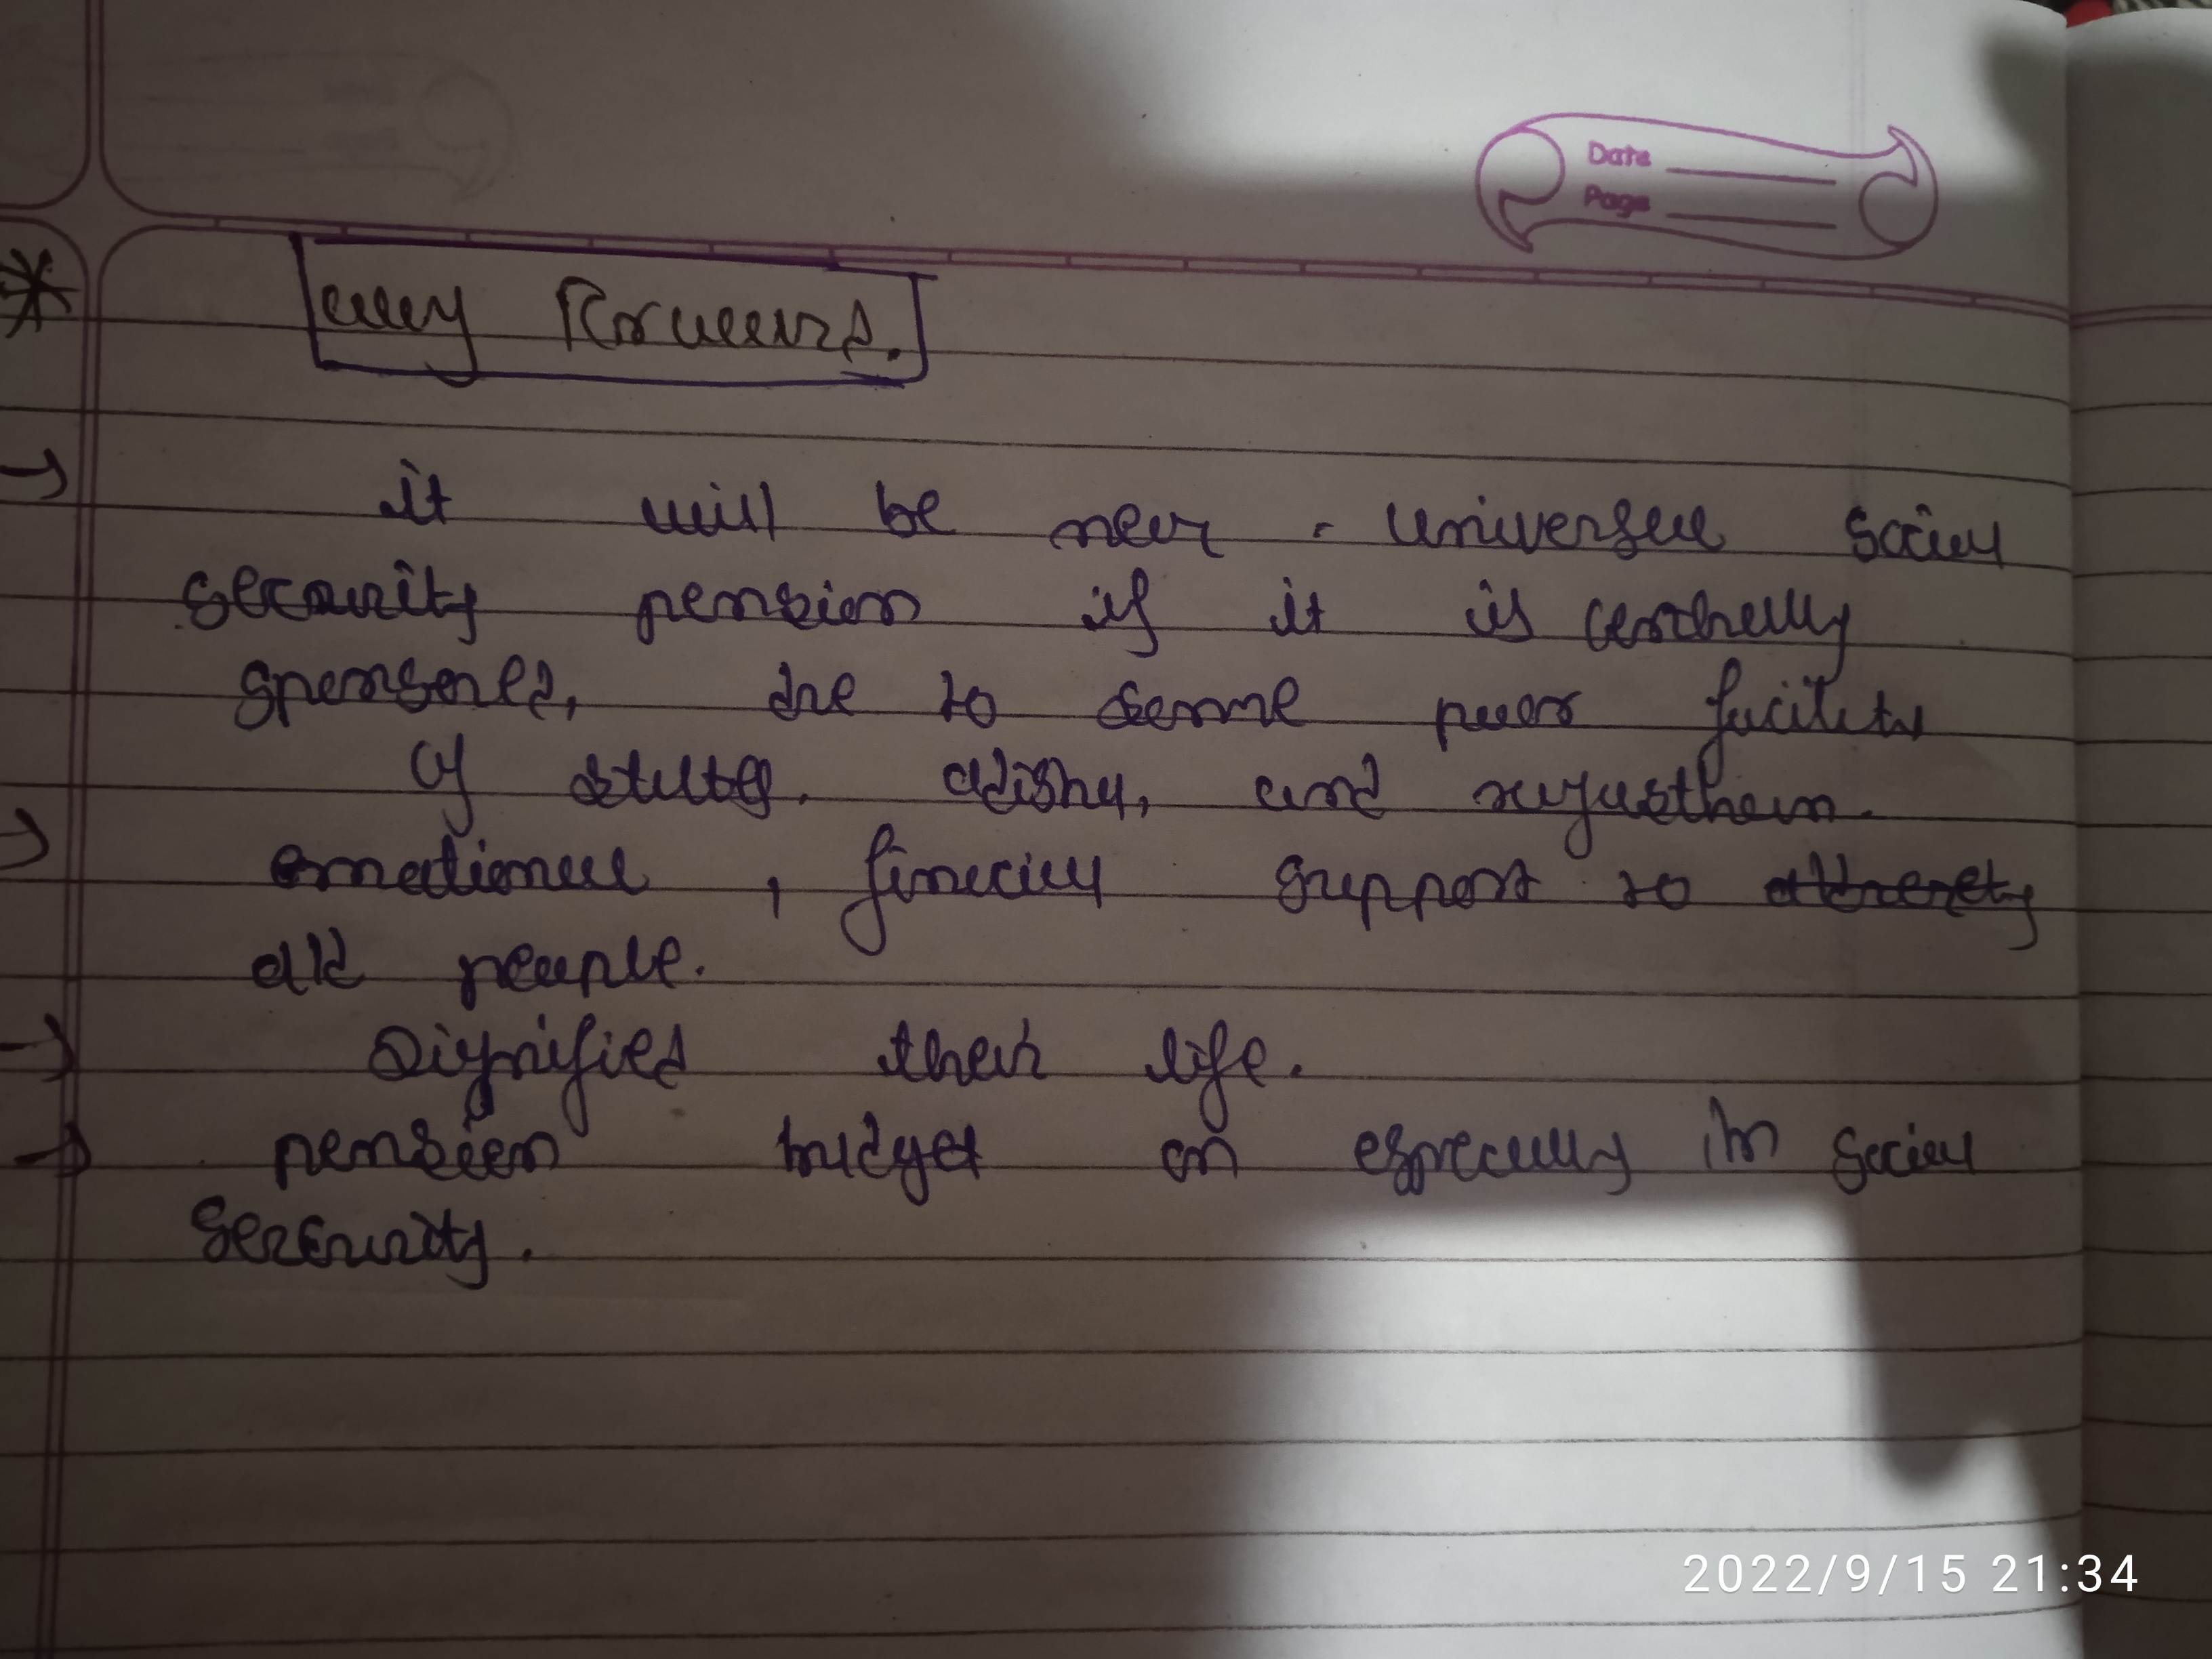 Date
Page
way Forward.
it will be near - universal social
security pension if it is centrally
sponsored, due to some poor facility
of states. odisha, and rajasthan.
emotional, finacial support to
old people.
Dignified their life.
pension budget on especially in social
security.
2022/9/15 21:34